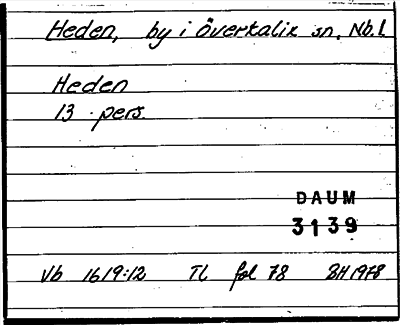 Heden, by i Överkalix sn. Nb.l
Heden
13 pers.
DAUM
3139
Vb 1619:12 TL fol 78 BH 1978